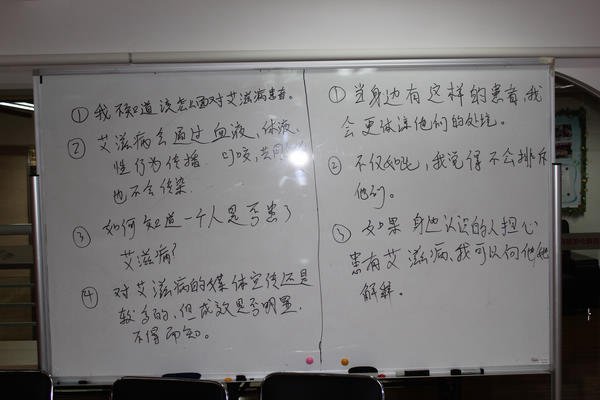 ①我不知道该怎么面对艾滋病患者。
②艾滋病会通过血液、体液、
性行为传播. 叮咬,共同
也不会传染.
③如何知道一个人是否患了
艾滋病?
④对艾滋病的媒体宣传还是
较多的,但成效是否明显.
不得而知。
①当身边有这样的患者,我
会更体谅他们的处境。
②不仅如此,我觉得不会排斥
他们。
③如果身边认识的人担心
患有艾滋病、我可以向他
解释。